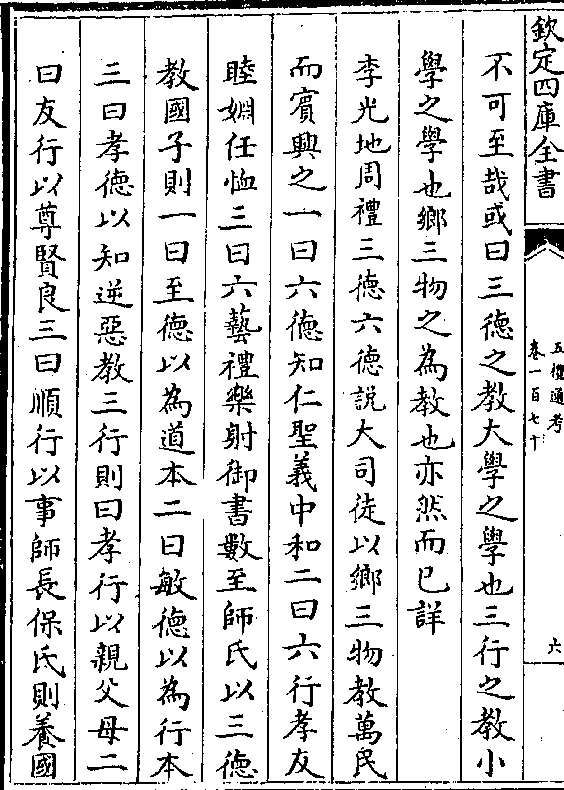 欽定四庫全書
五禮通考
卷一百七十
六
不可至哉或曰三德之教大學之學也三行之教小
學之學也鄉三物之為教也亦然而已詳
李光地周禮三德六德説大司徒以鄉三物教萬民
而賓興之一曰六德知仁聖義中和二曰六行孝友
睦婣任恤三曰六藝禮樂射御書數至師氏以三德
教國子則一曰至德以為道本二曰敏德以為行本
三曰孝德以知逆惡教三行則曰孝行以親父母二
曰友行以尊賢良三曰順行以事師長保氏則養國